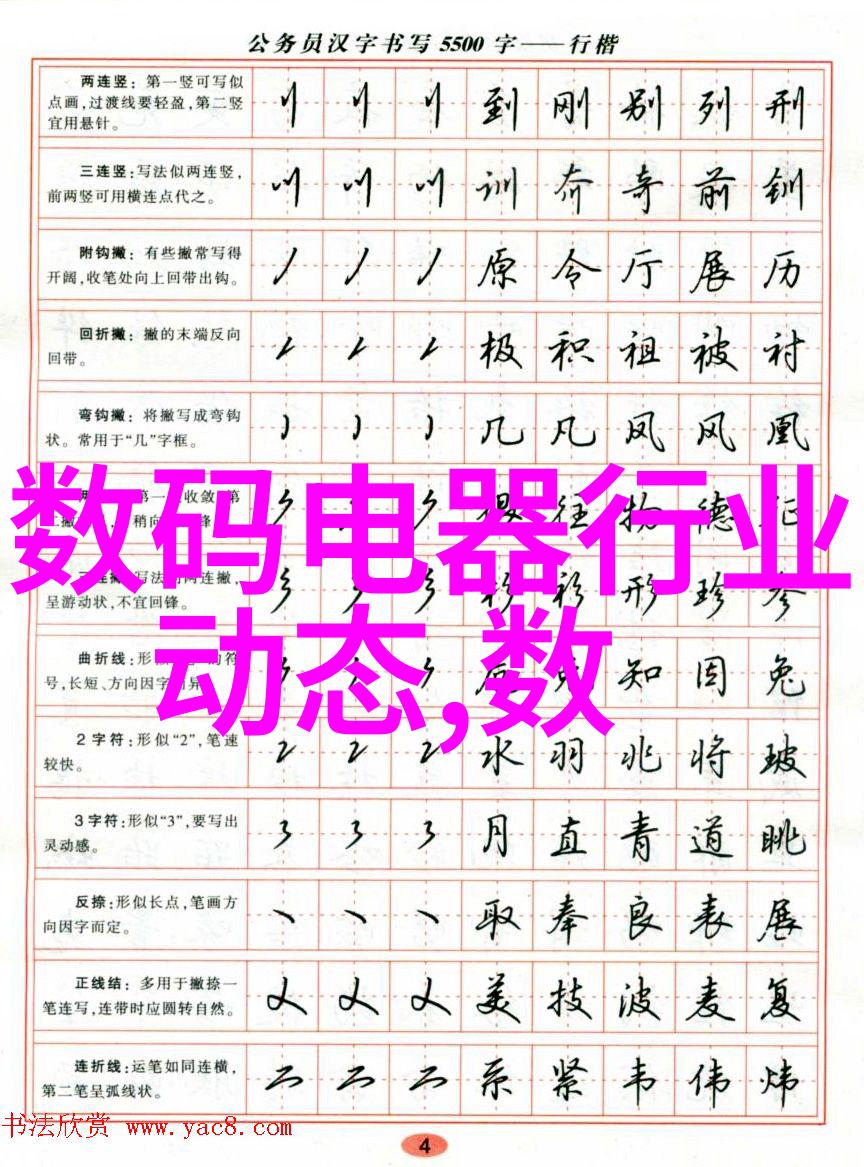 公务员汉字书写5500字——行楷
两连竖：第一竖可写似
点画，过渡线要轻盈，第二竖
宜用悬针。
到 刚 别 列 刑
三连竖：写法似两连竖，
前两竖可用横连点代之。
训 奔 奇 前 钏
附钩撇：有些撇常写得
开阔，收笔处向上回带出钩。
原 令 厅 展 历
回折撇：撇的末端反向
回带。
极 积 祖 被 衬
弯钩撇：将撇写成弯钩
状。常用于“几”字框。
几 凡 凤 风 凰
数码电器行业
动态,数
第一 收敛 第
稍向 锋
往 物 德
写法 两连撇，
呈游动状，不宜回锋。
形 珍 参
曲折线：形 符
号，长短、方向因字而异
知 因 兔
2字符：形似“2”，笔速
较快。
水 羽 兆 将 玻
3字符：形似“3”，要写出
灵动感。
月 直 青 道 眺
反捺：形似长点，笔画方
向因字而定。
取 奉 良 表 展
正线结：多用于撇捺一
笔连写，连带时应圆转自然。
美 技 波 麦 复
连折线：运笔如同连横，
第二笔呈弧线状。
系 紧 韦 伟 炜
书法欣赏 www.yac8.com
4